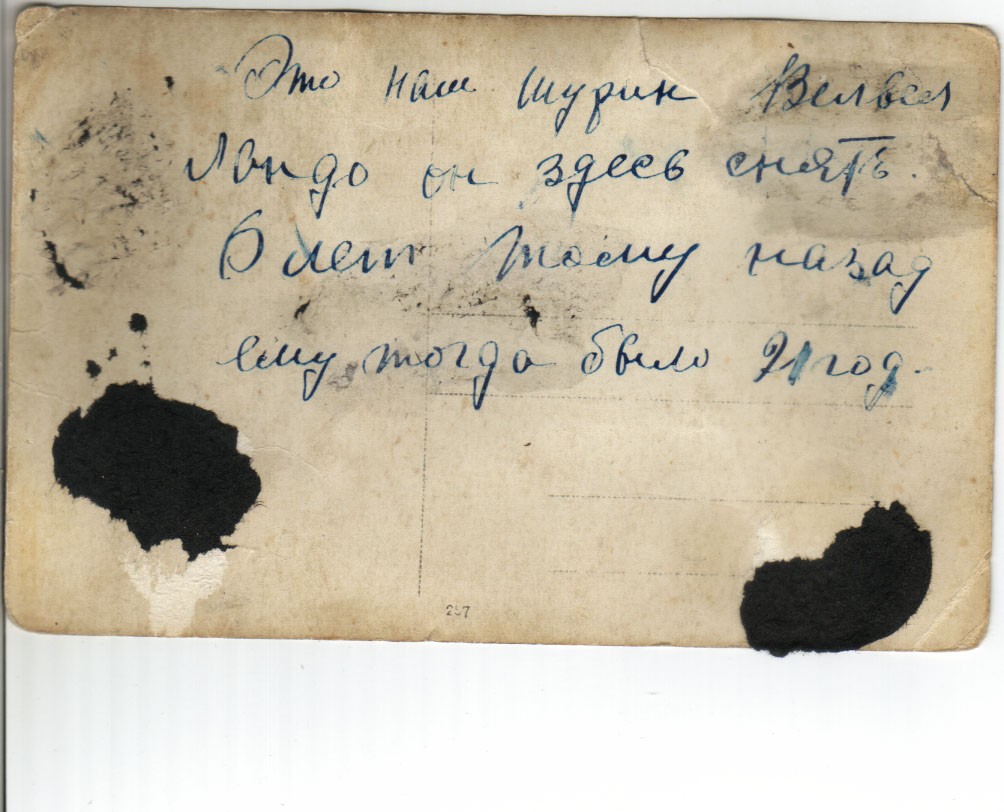 Это наш шурин Вельвел
Ландо он здесь снятъ.
6 лет тому назад
ему тогда было 21 год.
257